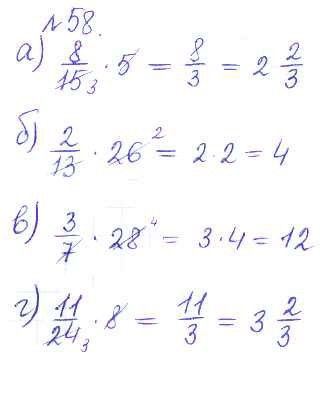 №58.
а) 8/15 3 · 5 = 8/3 = 2 2/3
б) 2/13 · 26 2 = 2 · 2 = 4
в) 3/7 · 28 4 = 3 · 4 = 12
г) 11/24 3 · 8 = 11/3 = 3 2/3